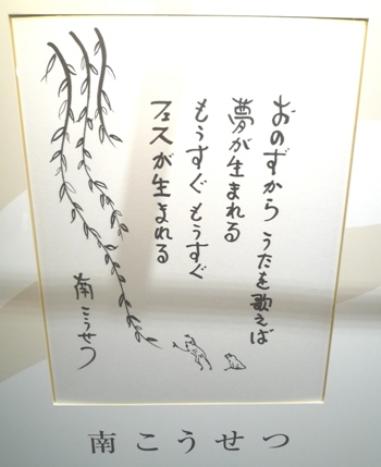 おのずから うたを歌えば
夢が生まれる
もうすぐ もうすぐ
フェスが生まれる
南こうせつ
南こうせつ